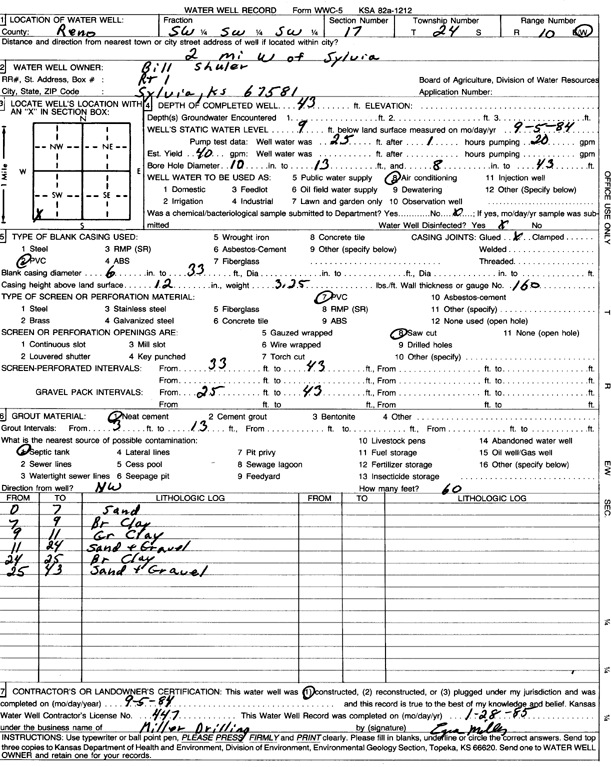 WATER WELL RECORD Form WWC-5 KSA 82a-1212
1 LOCATION OF WATER WELL: Fraction Section Number Township Number Range Number
County: Reno SW ¼ SW ¼ SW ¼ 17 T 24 S R 10 E/W
Distance and direction from nearest town or city street address of well if located within city?
2 mi W of Sylvia
2 WATER WELL OWNER: Bill Shuler
RR#, St. Address, Box # : Rt 1 Board of Agriculture, Division of Water Resources
City, State, ZIP Code : Sylvia, Ks 67581 Application Number:
3 LOCATE WELL'S LOCATION WITH AN "X" IN SECTION BOX: 4 DEPTH OF COMPLETED WELL 43 ft. ELEVATION:
N
Depth(s) Groundwater Encountered 1. ft. 2. ft. 3. ft.
WELL'S STATIC WATER LEVEL 9 ft. below land surface measured on mo/day/yr 9-5-84
NW NE Pump test data: Well water was 25 ft. after 1 hours pumping 20 gpm
Est. Yield 40 gpm: Well water was ft. after hours pumping gpm
W E 1 Mile Bore Hole Diameter 10 in. to 13 ft., and 8 in. to 43 ft.
WELL WATER TO BE USED AS: 5 Public water supply 8 Air conditioning 11 Injection well
SW SE 1 Domestic 3 Feedlot 6 Oil field water supply 9 Dewatering 12 Other (Specify below)
X 2 Irrigation 4 Industrial 7 Lawn and garden only 10 Observation well
S Was a chemical/bacteriological sample submitted to Department? Yes No ; If yes, mo/day/yr sample was submitted
Water Well Disinfected? Yes X No
5 TYPE OF BLANK CASING USED: 5 Wrought iron 8 Concrete tile CASING JOINTS: Glued X Clamped
1 Steel 3 RMP (SR) 6 Asbestos-Cement 9 Other (specify below) Welded
2 PVC 4 ABS 7 Fiberglass Threaded.
Blank casing diameter 6 in. to 33 ft., Dia in. to ft., Dia in. to ft.
Casing height above land surface 12 in., weight 3.25 lbs./ft. Wall thickness or gauge No. 160
TYPE OF SCREEN OR PERFORATION MATERIAL: 7 PVC 10 Asbestos-cement
1 Steel 3 Stainless steel 5 Fiberglass 8 RMP (SR) 11 Other (specify)
2 Brass 4 Galvanized steel 6 Concrete tile 9 ABS 12 None used (open hole)
SCREEN OR PERFORATION OPENINGS ARE: 5 Gauzed wrapped 8 Saw cut 11 None (open hole)
1 Continuous slot 3 Mill slot 6 Wire wrapped 9 Drilled holes
2 Louvered shutter 4 Key punched 7 Torch cut 10 Other (specify)
SCREEN-PERFORATED INTERVALS: From 33 ft. to 43 ft., From ft. to ft.
From ft. to ft., From ft. to ft.
GRAVEL PACK INTERVALS: From 25 ft. to 43 ft., From ft. to ft.
From ft. to ft., From ft. to ft.
6 GROUT MATERIAL: 1 Neat cement 2 Cement grout 3 Bentonite 4 Other
Grout Intervals: From 3 ft. to 13 ft., From ft. to ft., From ft. to ft.
What is the nearest source of possible contamination: 10 Livestock pens 14 Abandoned water well
1 Septic tank 4 Lateral lines 7 Pit privy 11 Fuel storage 15 Oil well/Gas well
2 Sewer lines 5 Cess pool 8 Sewage lagoon 12 Fertilizer storage 16 Other (specify below)
3 Watertight sewer lines 6 Seepage pit 9 Feedyard 13 Insecticide storage
Direction from well? NW How many feet? 60
FROM TO LITHOLOGIC LOG FROM TO LITHOLOGIC LOG
0 7 Sand
7 9 Br Clay
9 11 Gr Clay
11 24 Sand + Gravel
24 25 Br Clay
25 43 Sand + Gravel
7 CONTRACTOR'S OR LANDOWNER'S CERTIFICATION: This water well was (1) constructed, (2) reconstructed, or (3) plugged under my jurisdiction and was
completed on (mo/day/year) 9-5-84 and this record is true to the best of my knowledge and belief. Kansas
Water Well Contractor's License No. 447 This Water Well Record was completed on (mo/day/yr) 1-28-85
under the business name of Miller Drilling by (signature)
INSTRUCTIONS: Use typewriter or ball point pen, PLEASE PRESS FIRMLY and PRINT clearly. Please fill in blanks, underline or circle the correct answers. Send top
three copies to Kansas Department of Health and Environment, Division of Environment, Environmental Geology Section, Topeka, KS 66620. Send one to WATER WELL
OWNER and retain one for your records.
OFFICE USE ONLY
T
R
E/W
SEC.
¼
¼
¼